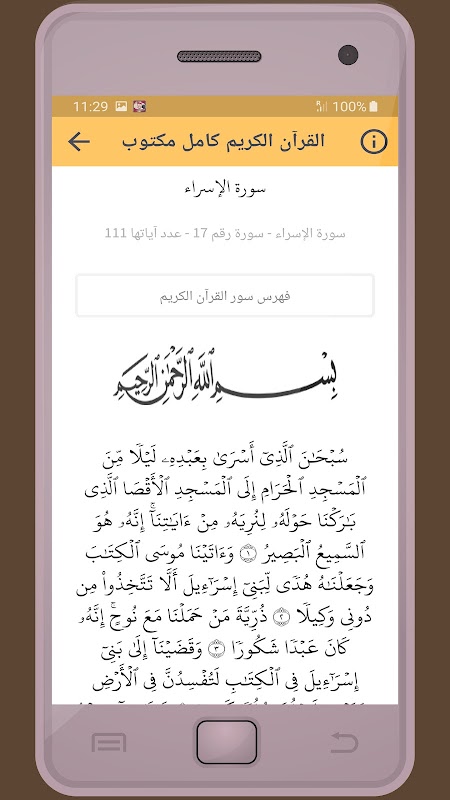 11:29
100%
القرآن الكريم كامل مكتوب
سورة الإسراء
سورة الإسراء - سورة رقم 17 - عدد آياتها 111
فهرس سور القرآن الكريم
بِسْمِ ٱللَّهِ ٱلرَّحْمَٰنِ ٱلرَّحِيمِ
سُبْحَٰنَ ٱلَّذِىٓ أَسْرَىٰ بِعَبْدِهِۦ لَيْلًا مِّنَ
ٱلْمَسْجِدِ ٱلْحَرَامِ إِلَى ٱلْمَسْجِدِ ٱلْأَقْصَا ٱلَّذِى
بَٰرَكْنَا حَوْلَهُۥ لِنُرِيَهُۥ مِنْ ءَايَٰتِنَآ ۚ إِنَّهُۥ هُوَ
ٱلسَّمِيعُ ٱلْبَصِيرُ ۝١ وَءَاتَيْنَا مُوسَى ٱلْكِتَٰبَ
وَجَعَلْنَٰهُ هُدًى لِّبَنِىٓ إِسْرَٰٓءِيلَ أَلَّا تَتَّخِذُوا۟ مِن
دُونِى وَكِيلًا ۝٢ ذُرِّيَّةَ مَنْ حَمَلْنَا مَعَ نُوحٍ ۚ إِنَّهُۥ
كَانَ عَبْدًا شَكُورًا ۝٣ وَقَضَيْنَآ إِلَىٰ بَنِىٓ
إِسْرَٰٓءِيلَ فِى ٱلْكِتَٰبِ لَتُفْسِدُنَّ فِى ٱلْأَرْضِ